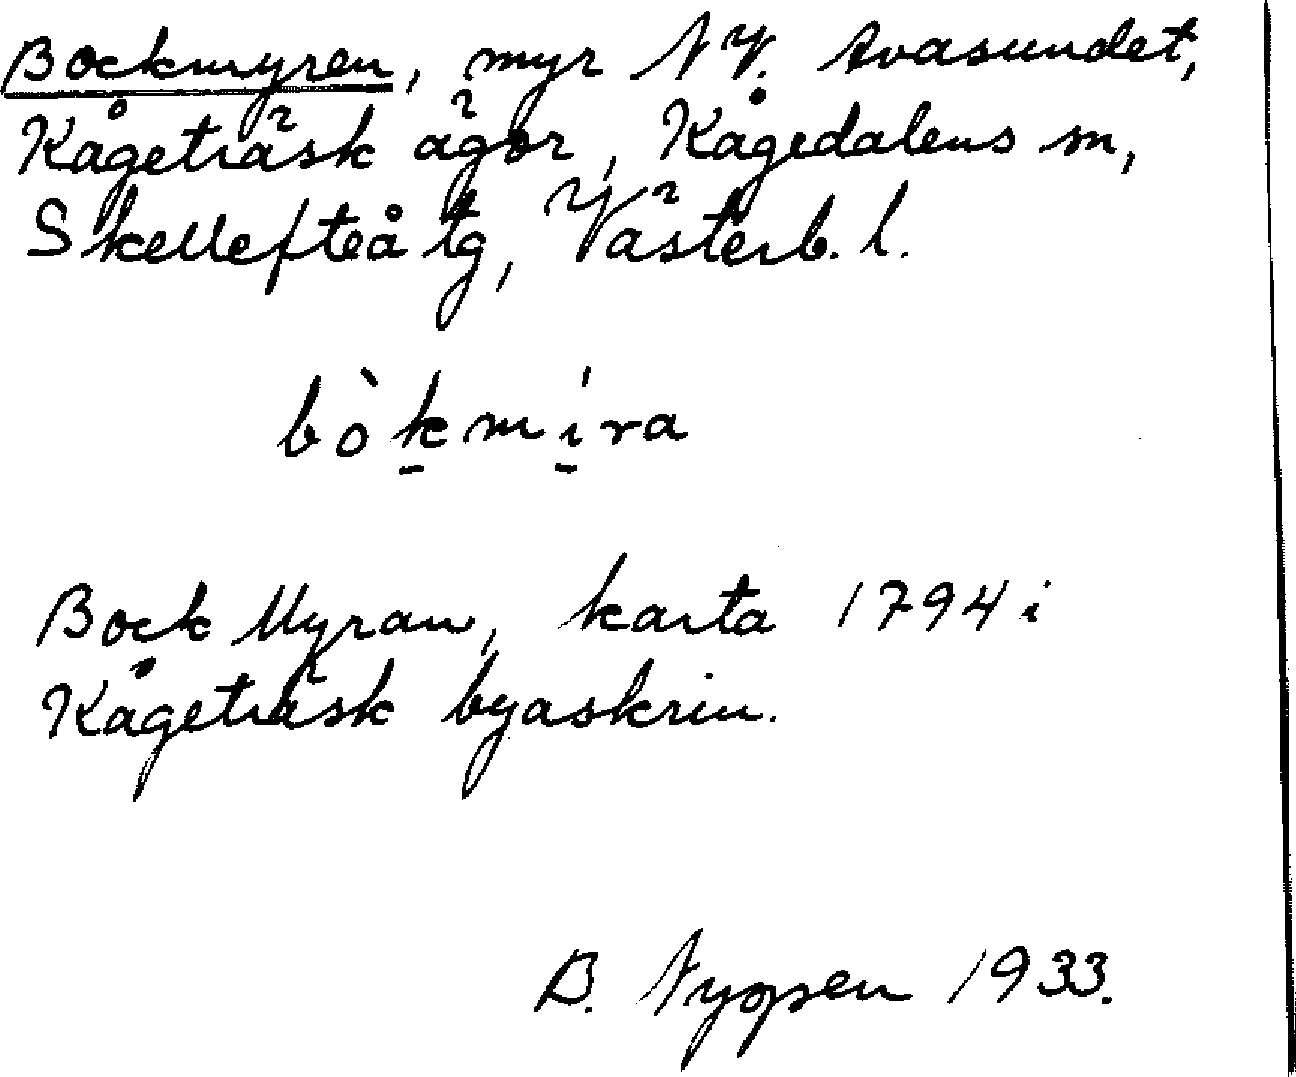 Bockmyren, myr NV. Avasundet,
Kågeträsk ägor, Kågedalens sn,
Skellefteå tg, Västerb. l.
bòk̠mí̠ra
Bock Myran, karta 1794 i
Kågeträsk byaskrin.
B. Nyopsen 1933.